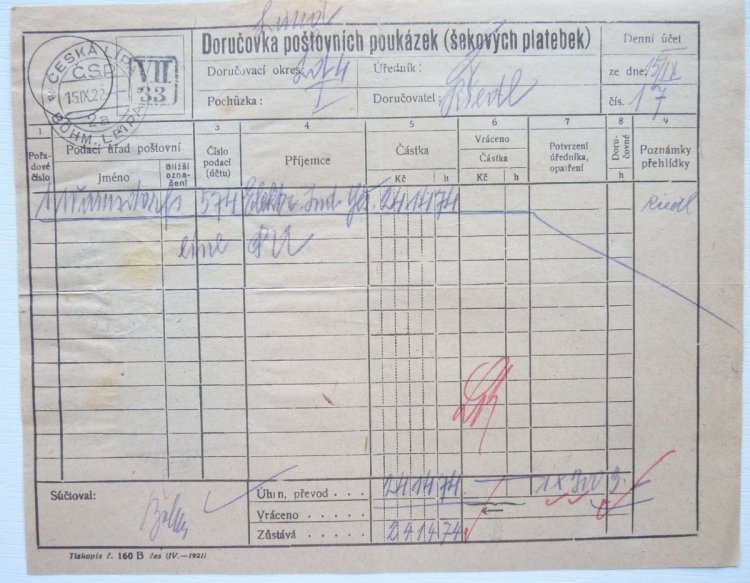 Doručovka poštovních poukázek (šekových platebek)
Denní účet
Doručovací okres
Úředník :
ze dne: 15/IX
Pochůzka : I
Doručovatel: Riedl
čís. 17
ČESKÁ LÍPA
Č.S.P.
15.IX.22
2a
BÖHM. LEIPA
VII
33
1 3 4 5 6 7 8 9
Pořadové číslo
Podací úřad poštovní
Jméno
Bližší označení
Číslo podací (účtu)
Příjemce
Částka
Kč h
Vráceno
Částka
Kč h
Potvrzení úředníka, opatření
Doručovné
h
Poznámky přehlídky
574 2414 74 Riedl
Súčtoval:
Úhrn, převod . . . . 2414 74
Vráceno . . . . .
Zůstává . . . . . 2414 74
Tiskopis č. 160 B čes (IV.—1921)